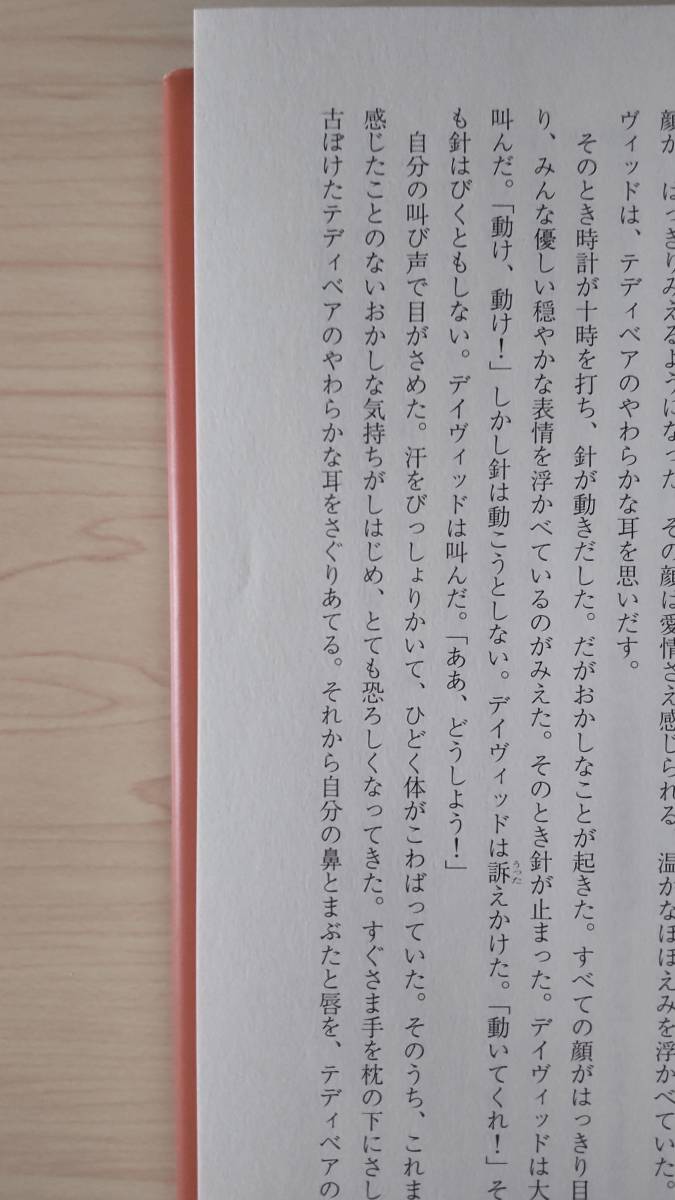 顔が、はっきりみえるようになった。その顔は愛情さえ感じられる、温かなほほえみを浮かべていた。
ヴィッドは、テディベアのやわらかな耳を思いだす。
そのとき時計が十時を打ち、針が動きだした。だがおかしなことが起きた。すべての顔がはっきり目
り、みんな優しい穏やかな表情を浮かべているのがみえた。そのとき針が止まった。デイヴィッドは大
叫んだ。「動け、動け！」しかし針は動こうとしない。デイヴィッドは訴えかけた。「動いてくれ！」そ
も針はびくともしない。デイヴィッドは叫んだ。「ああ、どうしよう！」
自分の叫び声で目がさめた。汗をびっしょりかいて、ひどく体がこわばっていた。そのうち、これま
感じたことのないおかしな気持ちがしはじめ、とても恐ろしくなってきた。すぐさま手を枕の下にさし
古ぼけたテディベアのやわらかな耳をさぐりあてる。それから自分の鼻とまぶたと唇を、テディベアの